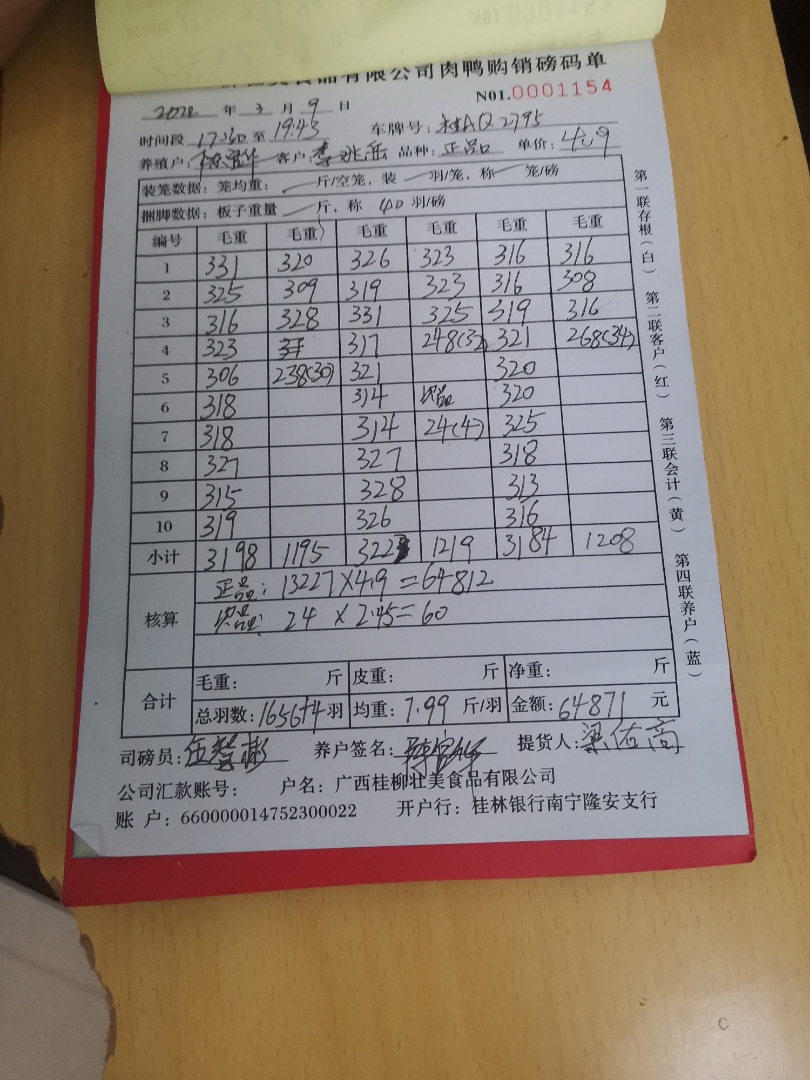 食品有限公司肉鸭购销磅码单
NO1.0001154
2022 年 3 月 9 日
时间段 17:30 至 19:43 车牌号: 桂AQ2795
养殖户: 客户: 李 品种: 正品 单价: 4.9
装笼数据: 笼均重: 斤/空笼, 装 羽/笼, 称 笼/磅
捆脚数据: 板子重量 斤, 称 40 羽/磅
编号 毛重 毛重 毛重 毛重 毛重 毛重
1 331 320 326 323 316 316
2 325 309 319 323 316 308
3 316 328 331 325 319 316
4 323 317 248(32) 321 268(34)
5 306 238(30) 321 320
6 318 314 次品 320
7 318 314 24(4) 325
8 327 327 318
9 315 328 313
10 319 326 316
小计 3198 1195 3223 1219 3184 1208
核算
正品: 13227×4.9=64812
次品: 24×2.45=60
合计
毛重: 斤 皮重: 斤 净重: 斤
总羽数: 1656+4 羽 均重: 7.99 斤/羽 金额: 64871 元
司磅员: 养户签名: 提货人: 梁佑高
公司汇款账号: 户名: 广西桂柳壮美食品有限公司
账 户: 660000014752300022 开户行: 桂林银行南宁隆安支行
第一联存根(白) 第二联客户(红) 第三联会计(黄) 第四联养户(蓝)